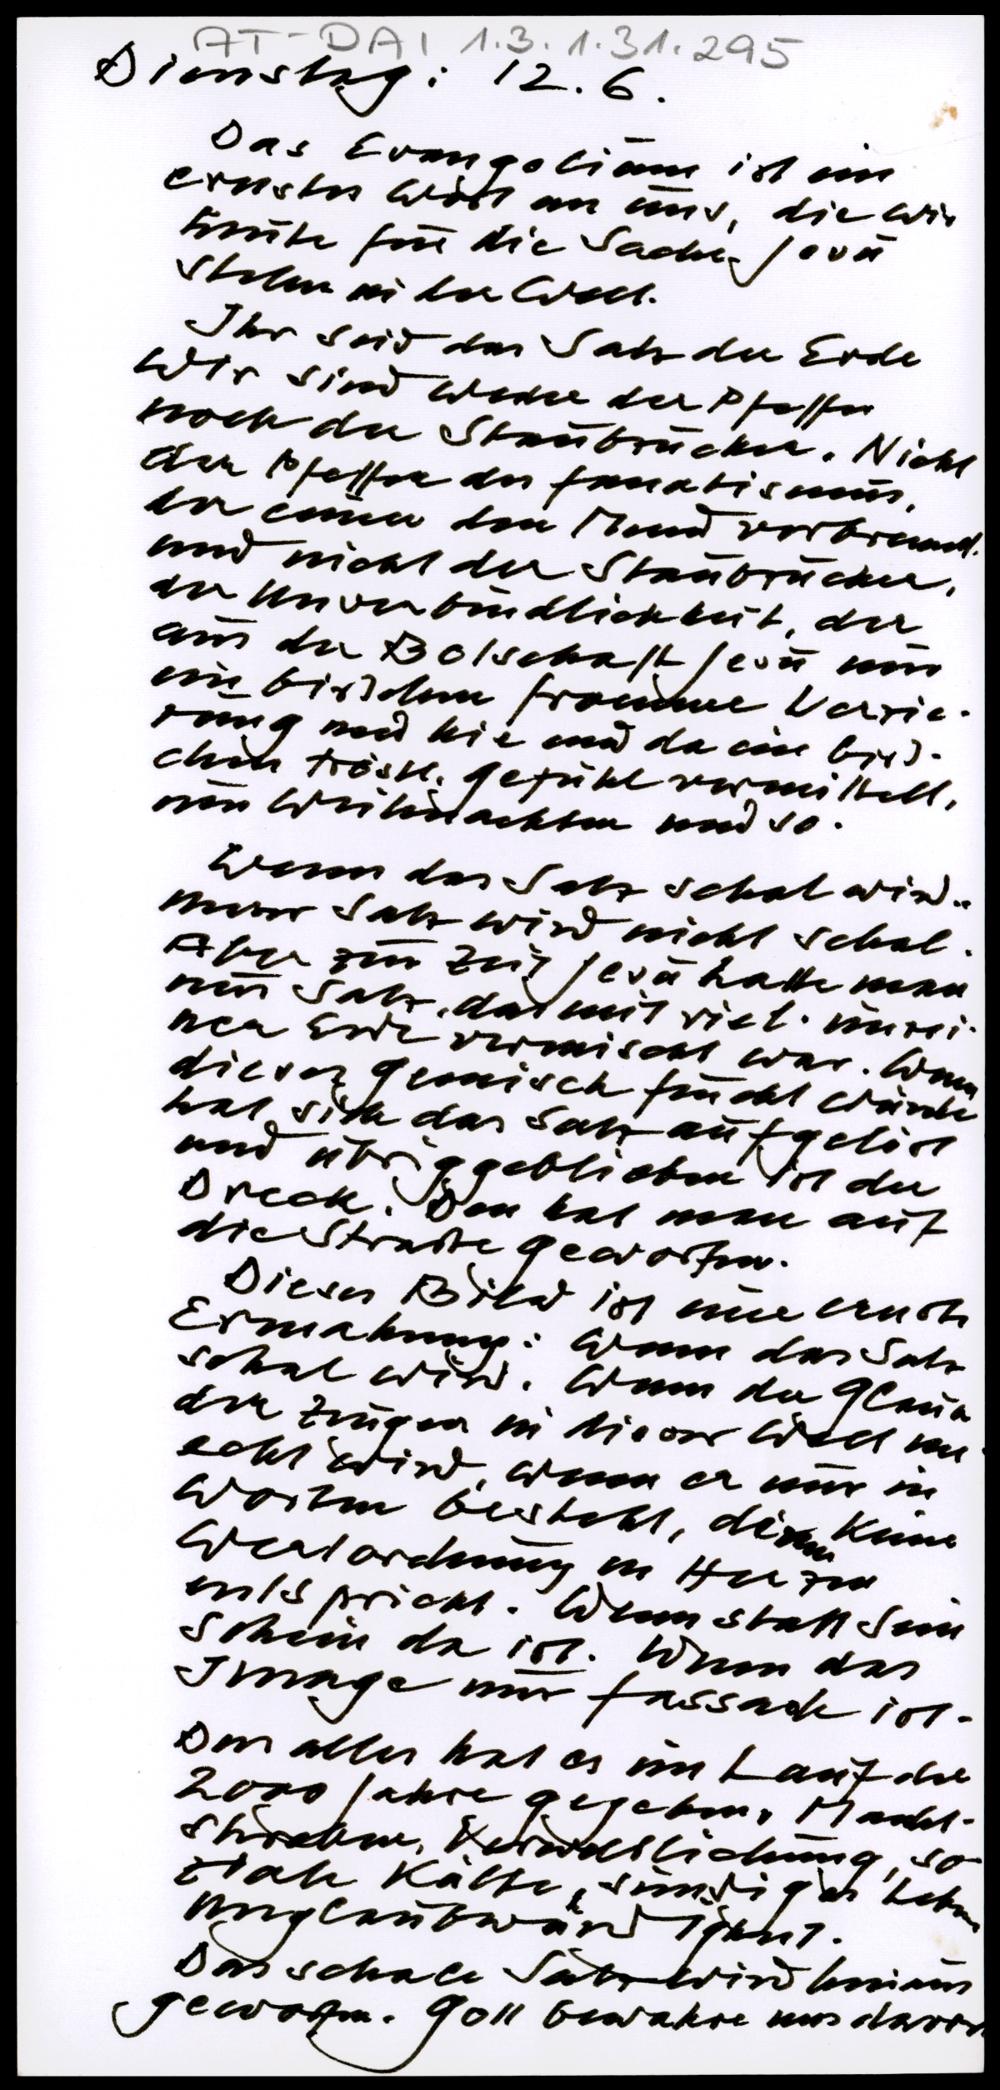 AT-DAI 1.3.1.31.295
Dienstag: 12.6.
Das Evangelium ist ein
ernstes Wort an uns, die wir
heute für die Sache Jesu
stehen in der Welt.
Ihr seid das Salz der Erde
Wir sind weder der Pfeffer
noch der Staubzucker. Nicht
der Pfeffer des Fanatismus,
der einem den Mund verbrennt.
und nicht der Staubzucker,
der Unverbindlichkeit, der
aus der Botschaft Jesu nur
ein bisschen fromme Verzie-
rung und hie und da ein biss-
chen tröstl. Gefühl vermittelt,
um Weihnachten und so.
Wenn das Salz schal wird..
Unser Salz wird nicht schal.
Aber zur Zeit Jesu hatte man
nur Salz, das mit viel unrei-
ner Erde vermischt war. Wenn
dieses Gemisch feucht wurde
hat sich das Salz aufgelöst
und übriggeblieben ist der
Dreck. Den hat man auf
die Straße geworfen.
Dieses Bild ist eine ernste
Ermahnung: Wenn das Salz
schal wird. Wenn der Glaube
der Zeugen in dieser Welt un-
echt wird, wenn er nur in
Worten besteht, denen keine
Wertordnung im Herzen
entspricht. Wenn statt Sein
Schein da ist. Wenn das
Image nur Fassade ist.
Das alles hat es im Lauf der
2000 Jahre gegeben, Macht-
streben, Verweltlichung, so-
ziale Kälte, sündiges Leben
Unglaubwürdigkeit.
Das schale Salz wird hinaus
geworfen. Gott bewahre uns davor